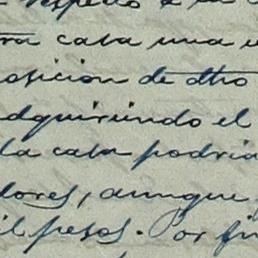 respecto a su
ra casa una
osición de dho
dquiriendo el
la casa podria
dores, aunque
il pesos. Por fin